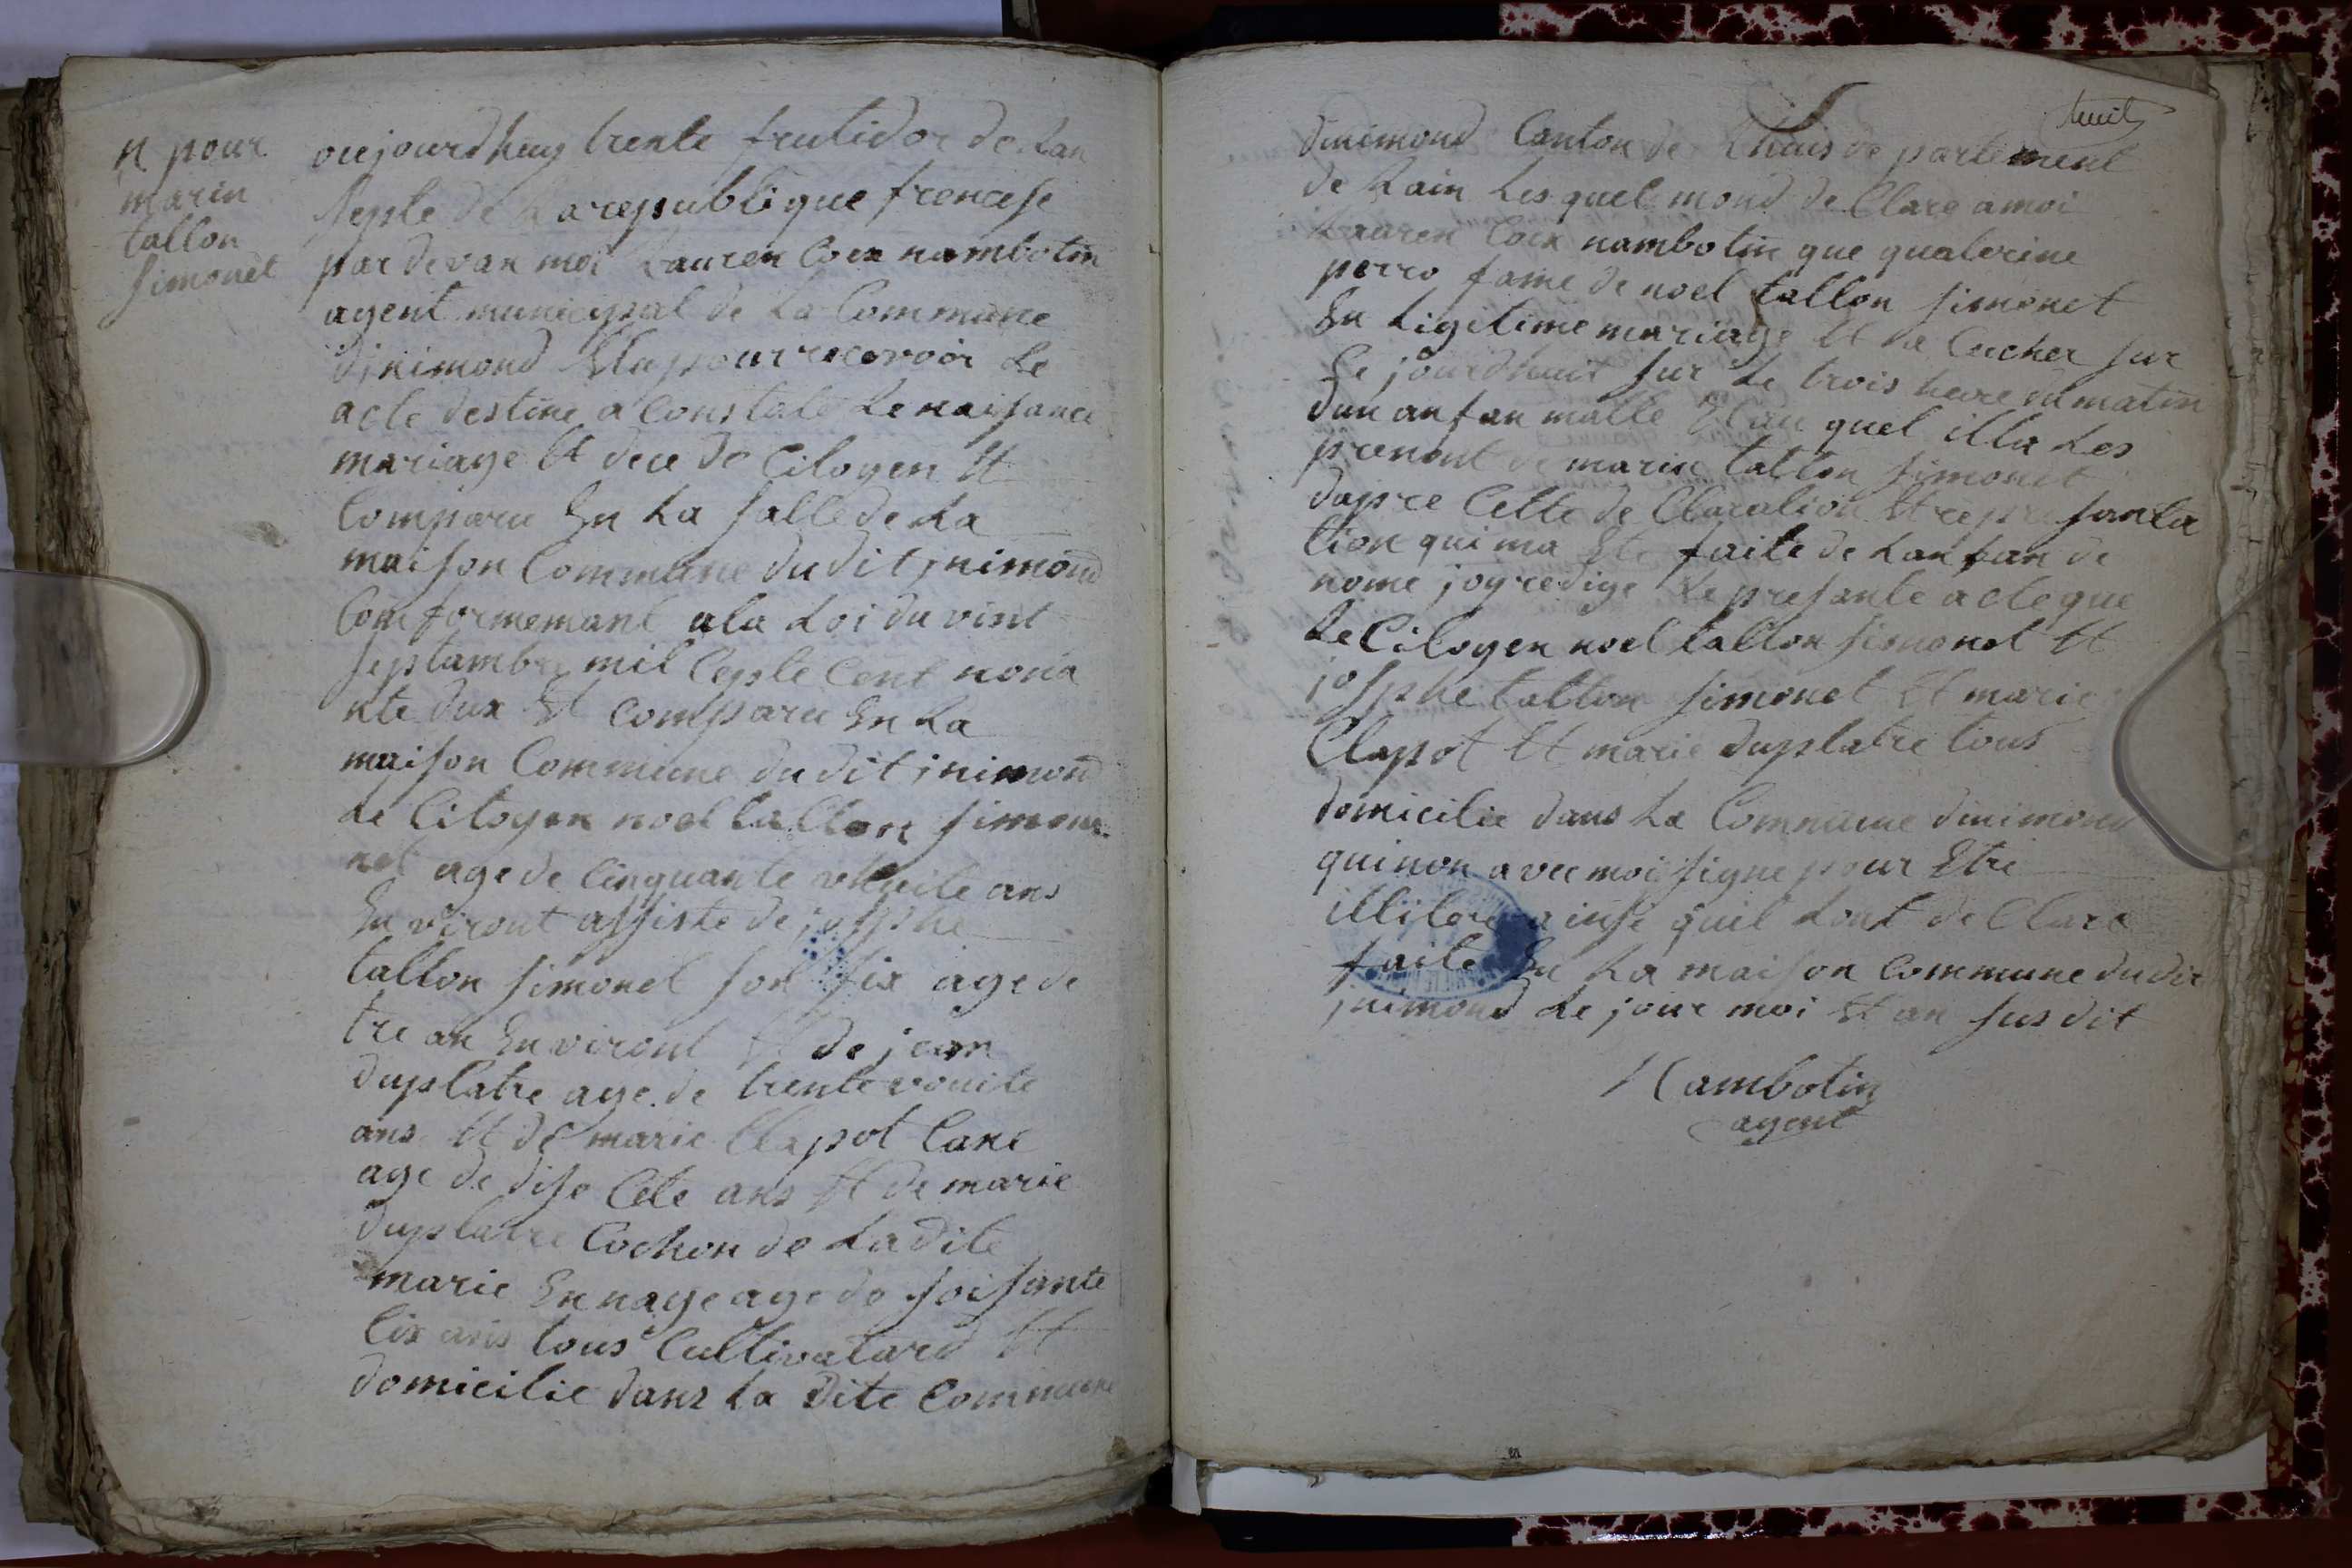 n pour
marin
tallon
simonet
oujourdhuy trente frutidor de lan
septe de la republique francese
par devan moi Lauren Coex nambotin
agent municipal de la Commune
dinimond Ellu pour recevoir le
acte destine a Constate le naisance
mariage Et dece de Citoyen Et
Comparu En la salle de la
maison Commune du dit inimond
Comformemant a la loi du vint
septambre mil Cepte Cent nona
nte dux Et Comparu En la
maison Commune du dit inimond
le Citoyen noel tallon simon
net age de Cinquante vhuite ans
En viront assiste de josphe
tallon simonet son fix age de
tre an En viront Et de jean
duplatre age de trente vouite
ans Et de marie Clapot
age de dise Cete ans Et de marie
duplatre Cochon de la dite
marie En nage age de soisante
Cix ans tous Cultivatard Et
domicilie dans la dite Commune
huit
dinimond Canton de Lhuis de partement
de Lain Les quel mond de Clare a moi
Lauren Coex nambotin que quaterine
perro fame de noel tallon simonet
En Ligitime mariage Et a Cucher sur
Le jourdhuit sur Le trois heure du matin
dun anfan malle Et au quel illa Les
prenont de marin tallon simonet
dapre Cette de Claration Et repre santa
tion qui ma Ete faite de Lanfan de
nome joy redige Le presante acte que
Le Citoyen noel tallon simonet Et
josphe tallon simonet Et marie
Clapot Et marie duplatre tous
domicilie dans La Commune dinimond
quinon avec moi signe pour Etre
illitere ainse quil Lont de Clare
faite En La maison Commune du dit
jnimond Le jour moi Et an sus dit
Nambotin
agent